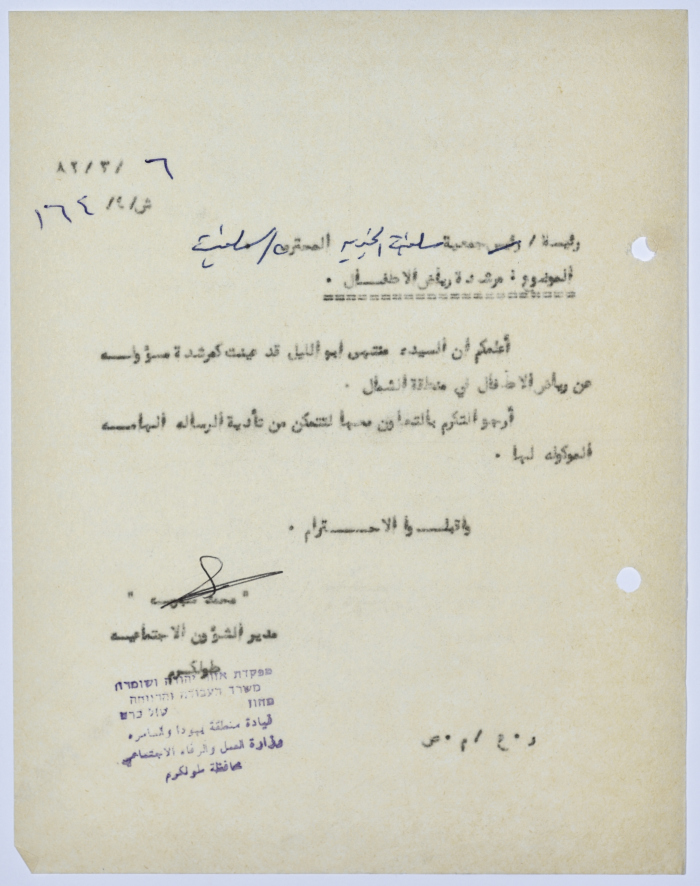 ٦ / ٣ / ٨٢
ش / ٩ / ١٦٤
رئيسة / رئيس جمعية سلفيت الخيرية المحترم / سلفيت
الموضوع : مرشدة رياض الاطفـــال ٠
أعلمكم أن السيده منتهى ابو الليل قد عينت كمرشدة مسؤولــه
عن رياض الاطفال في منطقة الشمال ٠
أرجو التكرم بالتعاون معها لتتمكن من تأدية الرساله الهامــه
الموكوله لها ٠
واقبلـــوا الاحـــــترام ٠
" محمد "
مدير الشؤون الاجتماعيــه
طولكرم
מפקדת אזור יהודה ושומרון
משרד העבודה והרווחה
מחוז טול כרם
قيادة منطقة يهودا والسامره
وزارة العمل والرفاه الاجتماعي
محافظة طولكرم
ر ٠ ع / م ٠ ص